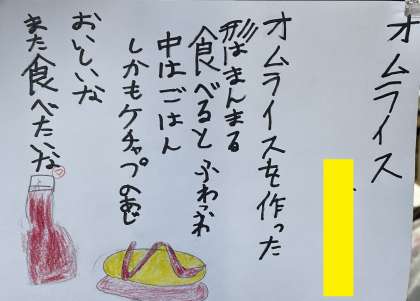 オムライス
オムライスを作った
形はまんまる
食べると ふわっふわ
中はごはん
しかもケチャプのあじ
おいしいな
また食べたいな